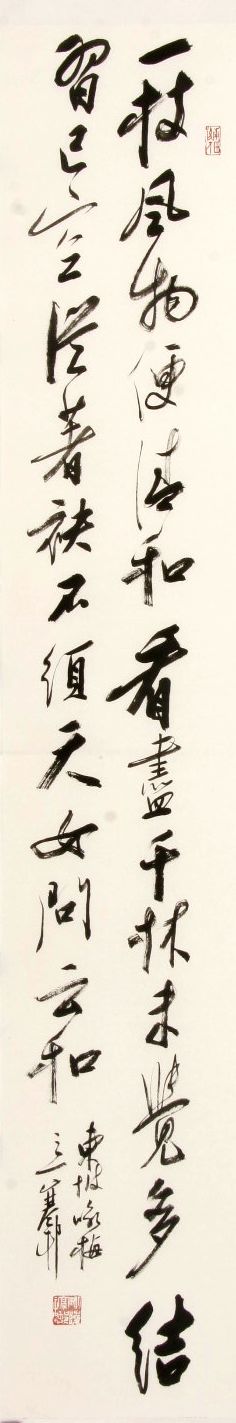 一枝風物便清和看盡千林未覺多結
習已空從著袂不須天女問云和
東坡咏梅